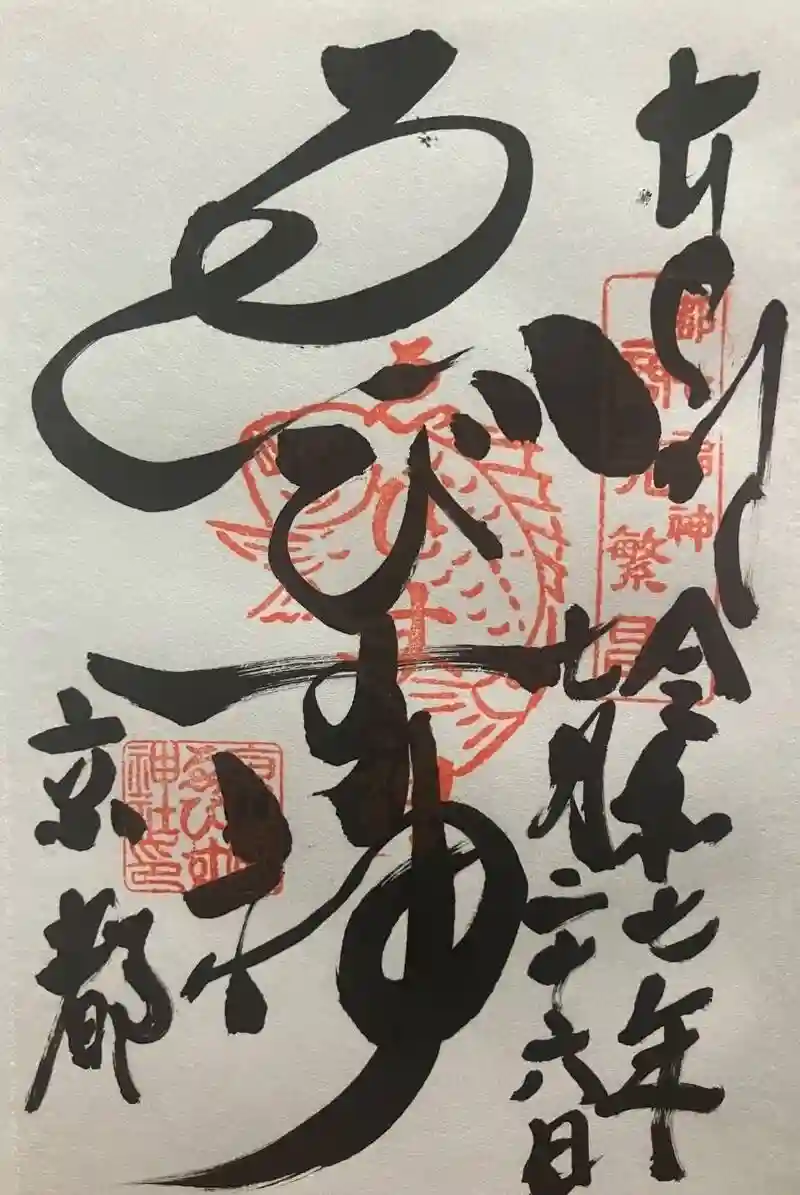 都七福神
商売繁昌
令和七年
七月二十六日
ゑびす神社
ゑびす
京都
京都
ゑびす
神社印